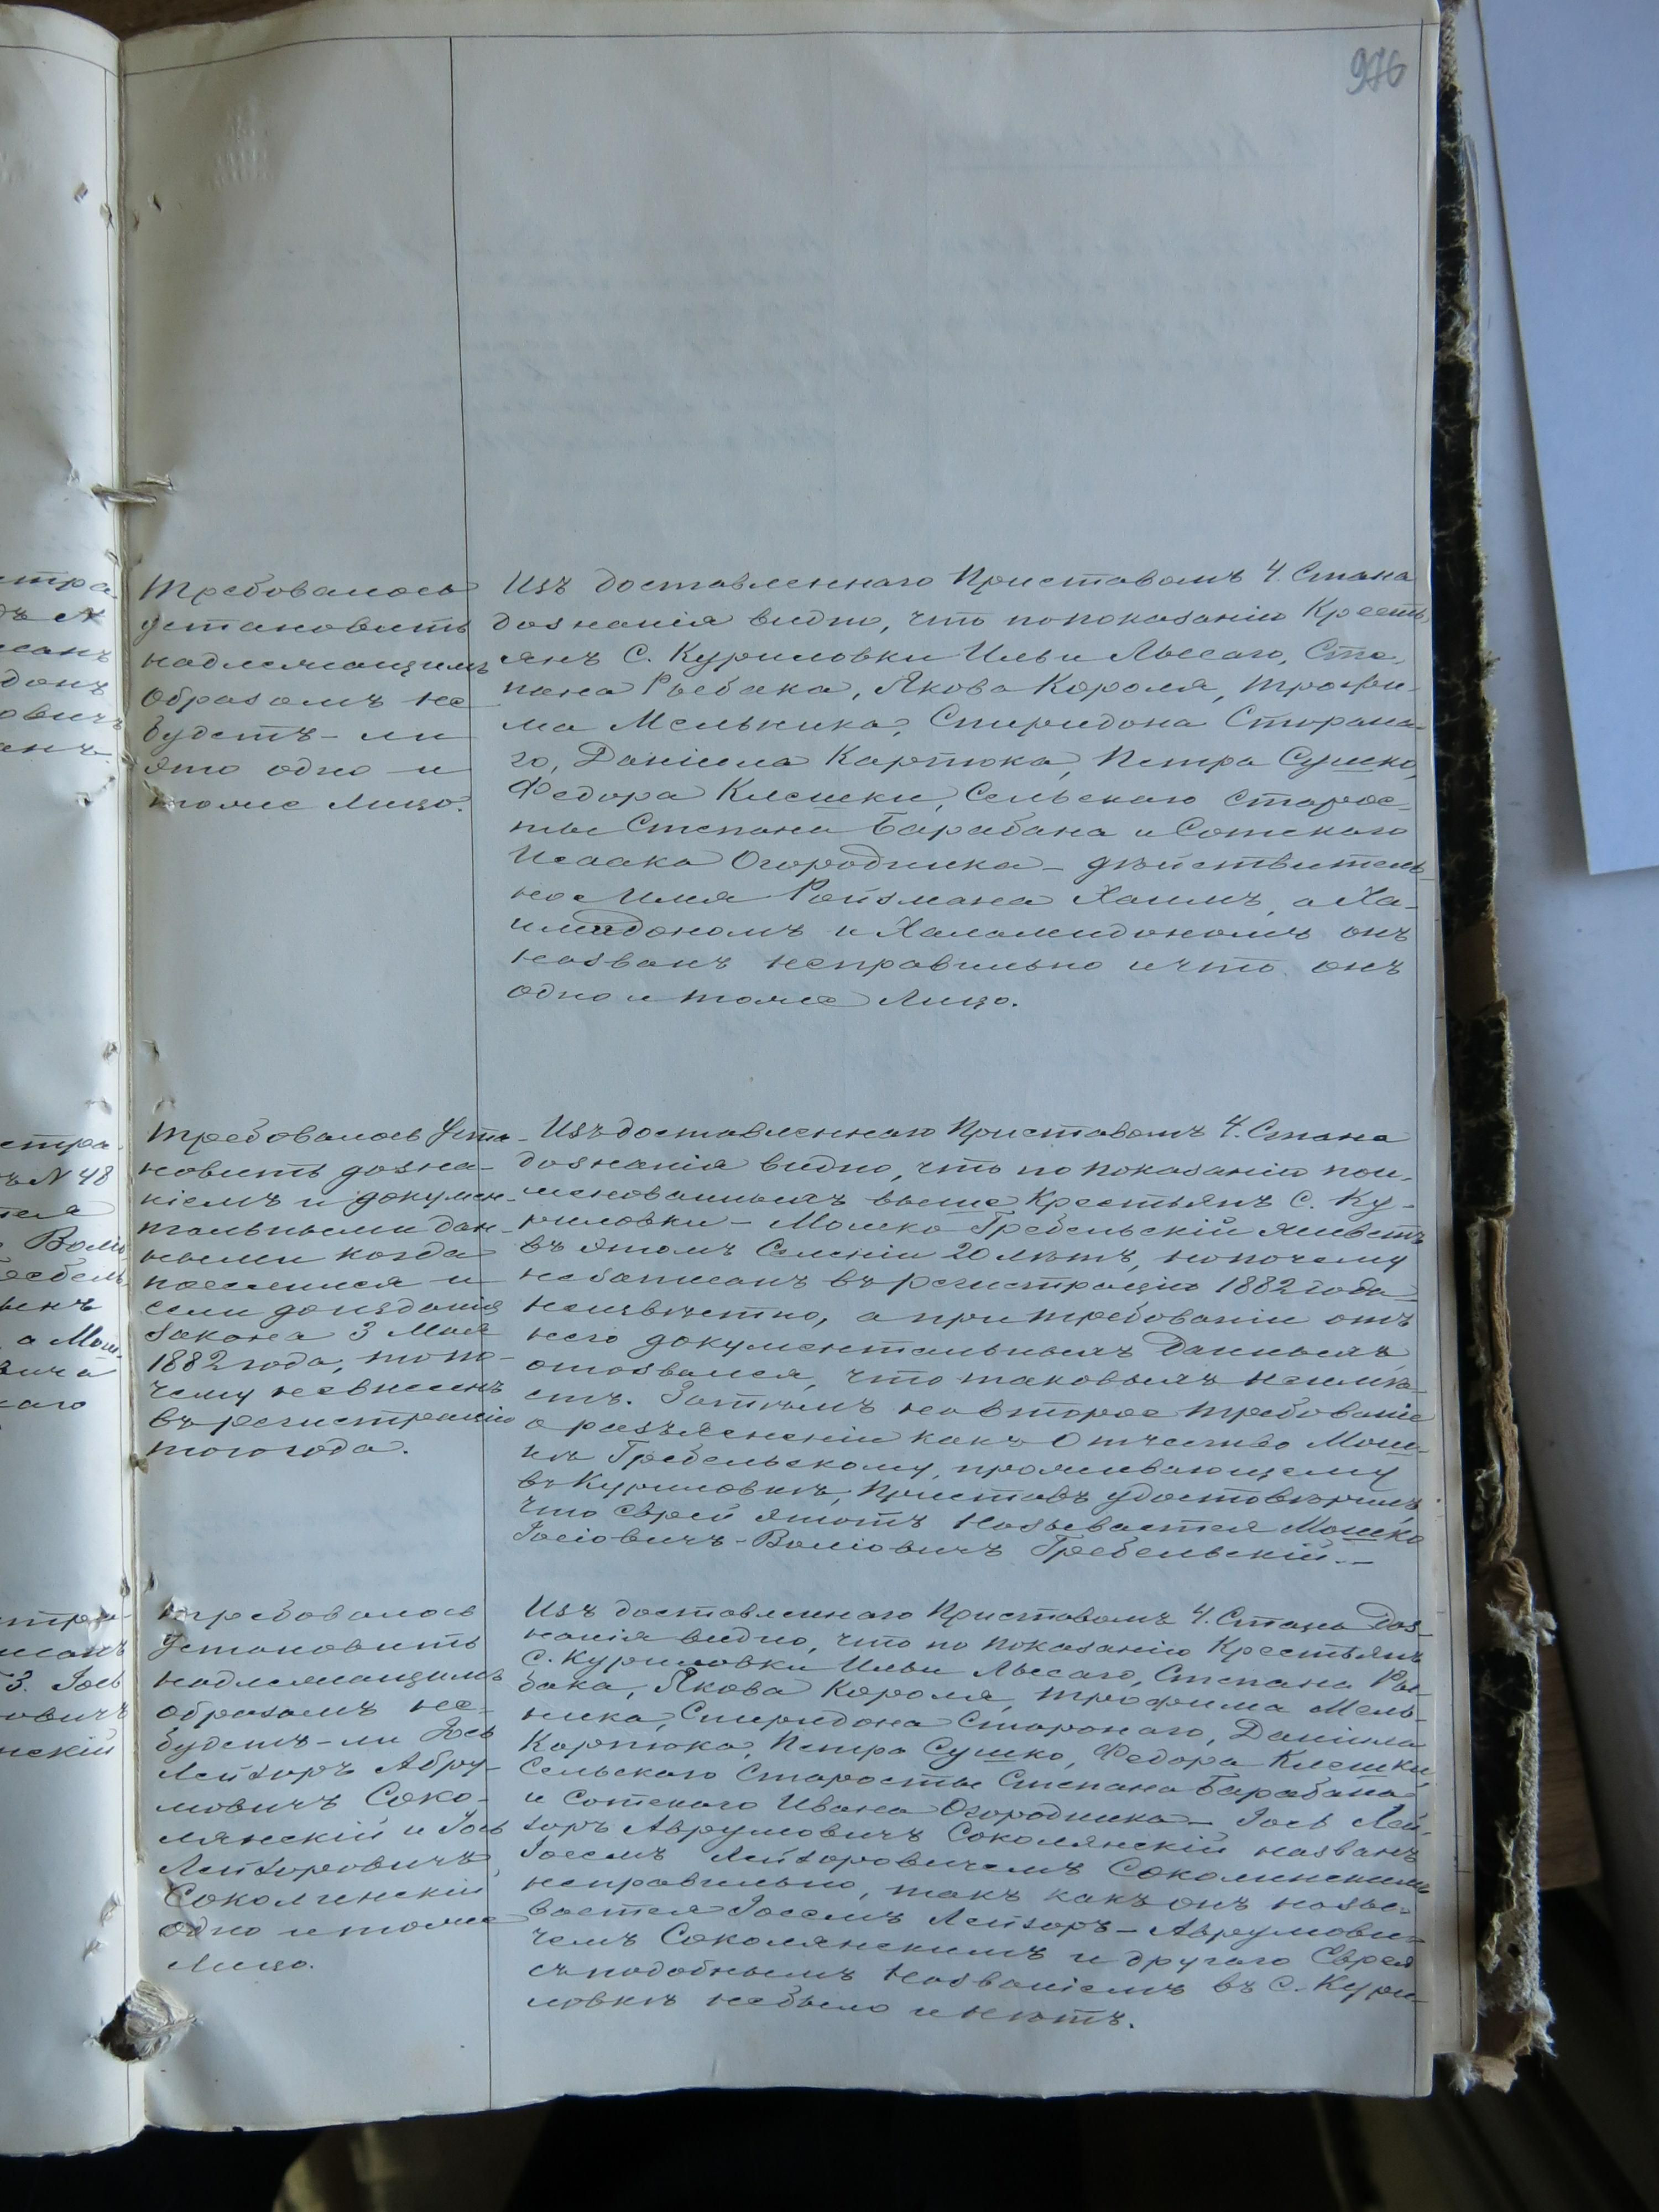 976
стра-
ъ N
санъ
донъ
овичъ
анъ
Требовалось
установить
надлежащимъ
образомъ не
будетъ-ли
это одно и
тоже лицо.
Изъ доставленнаго Приставомъ 4. Стана
дознанія видно, что по показанію Кресть
янъ С. Куриловки Ильи Лысаго, Сте-
пана Рыбака, Якова Короля, Трофи-
ма Мельника, Спиридона Сторожа-
го, Даніила Карпюка, Петра Сушко,
Федора Клешки, Сельскаго Старос-
ты Степана Барабана и Сотскаго
Исаака Огородника - дѣйствитель-
но Имя Ройзмана Хаимъ, а Ха-
имидономъ и Халамидономъ онъ
названъ неправильно и что онъ
одно и тоже Лицо.
стра-
ъ N 48
теля
Воль
ребель
ленъ
а Мош-
вича
каго
Требовалось Уста-
новить дозна-
ніемъ и докумен-
тальными дан-
ными когда
поселился и
если до изданія
Закона 3 Мая
1882 года, то по-
чему не внесенъ
въ регистрацію
того года.
Изъ доставленнаго Приставомъ 4. Стана
дознанія видно, что по показанію пои-
менованныхъ выше Крестьянъ С. Ку-
риловки - Мошко Гребельскій живетъ
въ этомъ Селеніи 20 лѣтъ, но почему
не записанъ въ регистрацію 1882 года
неизвѣстно, а при требованіи отъ
него документальныхъ Данныхъ,
отозвался, что таковыхъ не имѣ-
етъ. Затѣмъ на второе требованіе
о разъясненіи какъ Отчество Мош-
кѣ Гребельскому, проживающему
въ Куриловкѣ, Приставъ удостовѣрилъ,
что Еврей этотъ Называется Мошко
Іосіовичъ-Воліовичъ Гребельскій.-
стра-
исанъ
3. Іось
овичъ
нскій
Требовалось
Установить
надлежащимъ
образомъ не-
будетъ-ли Іось
Лейзоръ Абру-
мовичъ Соко-
лянскій и Іось
Лейзоровичъ
Соколинскій
одно и тоже
лицо.
Изъ доставленнаго Приставомъ 4. Стана Доз-
нанія видно, что по показанію Крестьянъ
С. Куриловки Ильи Лысаго, Степана Ры-
бака, Якова Короля, Трофима Мель-
ника, Спиридона Сторожаго, Даніила
Карпюка, Петра Сушко, Федора Клешки,
Сельскаго Старосты Степана Барабана
и Сотскаго Ивана Огородника - Іось Лей-
зоръ Аврумовичъ Соколянскій названъ
Іосемъ Лейзоровичемъ Соколинскимъ
неправильно, такъ какъ онъ назы-
вается Іосемъ Лейзоръ-Аврумови-
чемъ Соколянскимъ и другаго Еврея
съ подобнымъ Названіемъ въ С. Кури-
ловкѣ не было и нѣтъ.